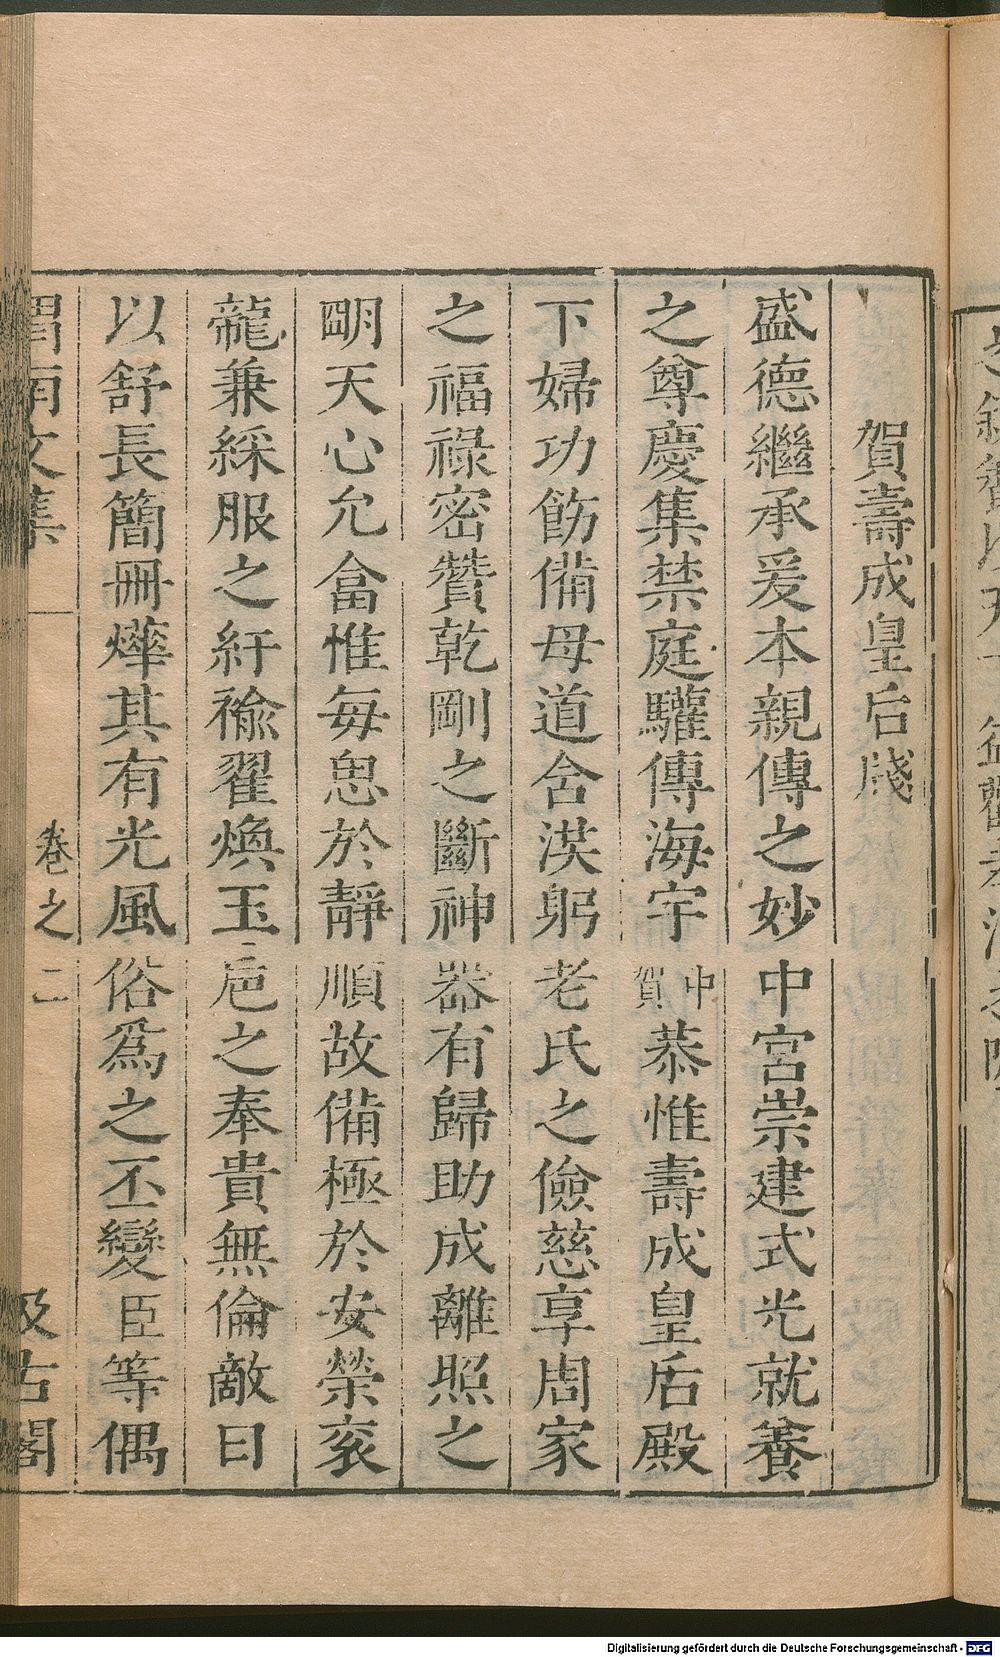 賀壽成皇后牋
盛德繼承爰本親傳之妙中宮崇建式光就養
之尊慶集禁庭驩傳海宇中賀恭惟壽成皇后殿
下婦功飭備母道含洪躬老氏之儉慈享周家
之福祿密贊乾剛之斷神器有歸助成離照之
明天心允會惟每思於靜順故備極於安榮衮
龍兼綵服之紆褕翟煥玉巵之奉貴無倫敵日
以舒長簡冊燁其有光風俗爲之丕變臣等偶
渭南文集 卷之二 汲古閣
Digitalisierung gefördert durch die Deutsche Forschungsgemeinschaft - DFG